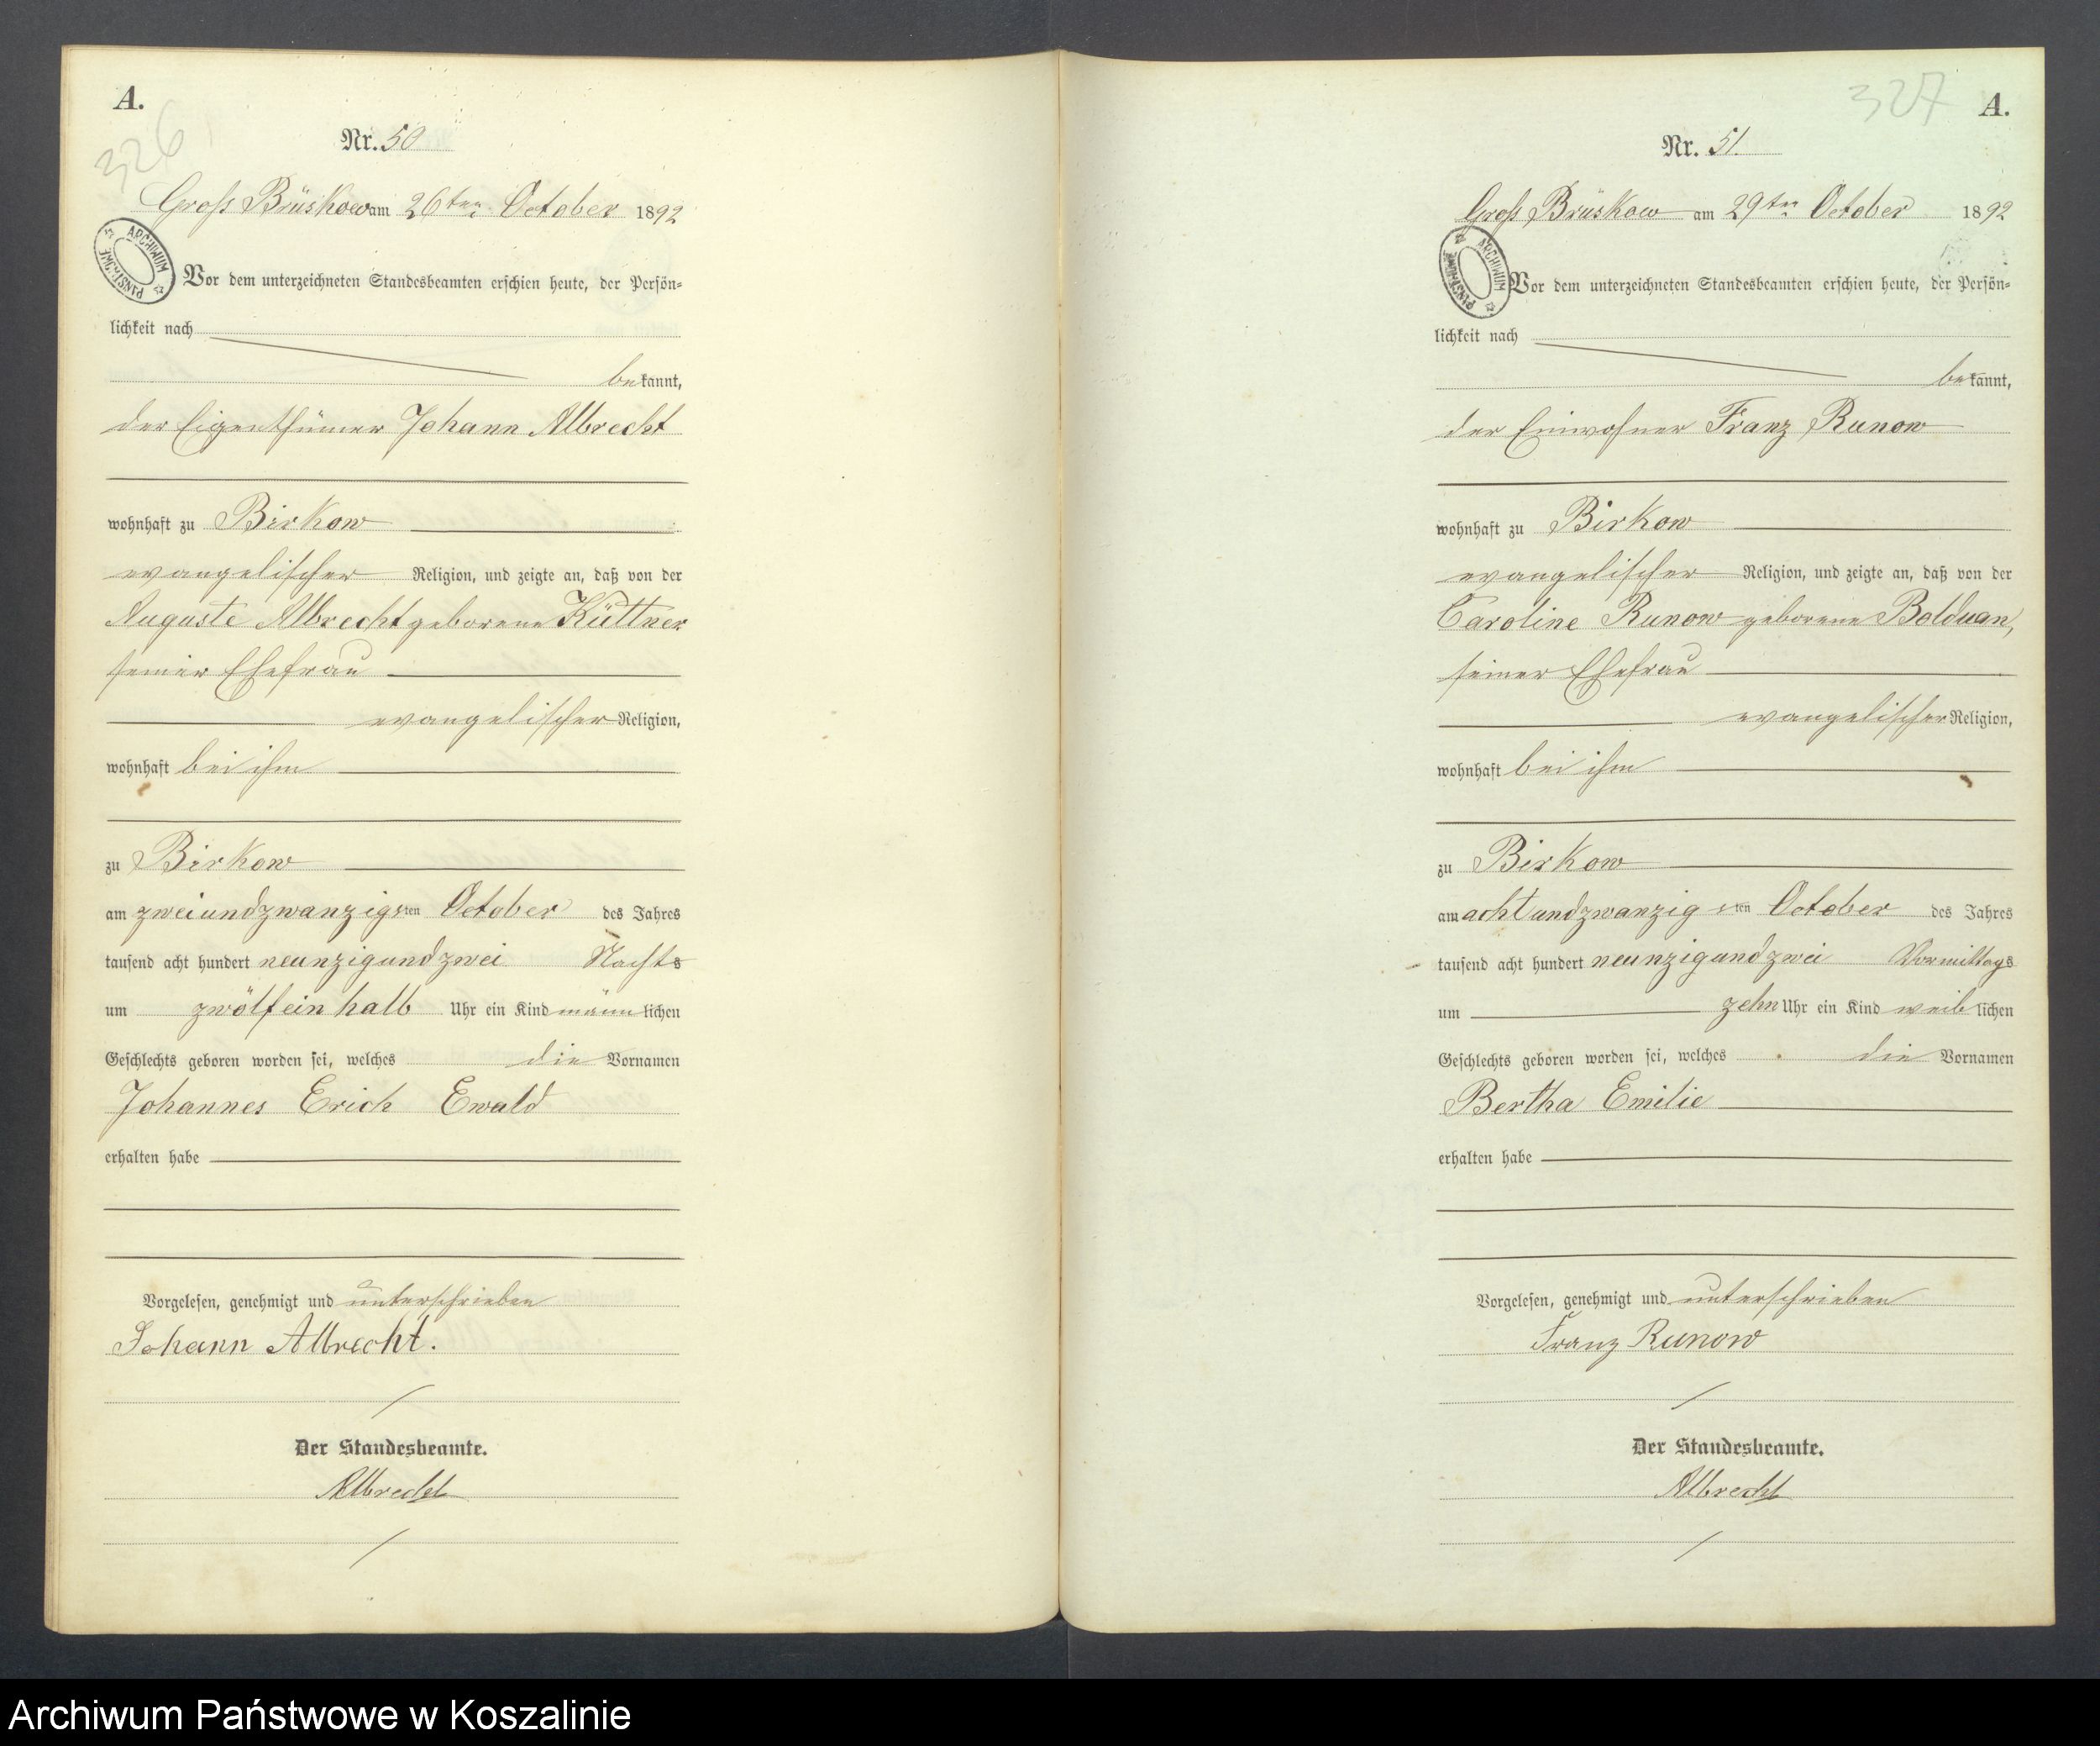 A.
326
Nr. 50
Gross Brüskow am 26ten October 1892
ARCHIWUM PAŃSTWOWE
Vor dem unterzeichneten Standesbeamten erschien heute, der Persön-
lichkeit nach
bekannt,
der Eigenthümer Johann Albrecht
wohnhaft zu Birkow
evangelischer Religion, und zeigte an, daß von der
Auguste Albrecht geborene Küttner
seiner Ehefrau
evangelischer Religion,
wohnhaft bei ihm
zu Birkow
am zweiundzwanzigsten October des Jahres
tausend acht hundert neunzigundzwei Nachts
um zwölfeinhalb Uhr ein Kind männlichen
Geschlechts geboren worden sei, welches die Vornamen
Johannes Erich Ewald
erhalten habe
Vorgelesen, genehmigt und unterschrieben
Johann Albrecht.
Der Standesbeamte.
Albrecht
327
A.
Nr. 51.
Gross Brüskow am 29ten October 1892
ARCHIWUM PAŃSTWOWE
Vor dem unterzeichneten Standesbeamten erschien heute, der Persön-
lichkeit nach
bekannt,
der Einwohner Franz Runow
wohnhaft zu Birkow
evangelischer Religion, und zeigte an, daß von der
Caroline Runow geborene Bolduan,
seiner Ehefrau
evangelischer Religion,
wohnhaft bei ihm
zu Birkow
am achtundzwanzigsten October des Jahres
tausend acht hundert neunzigundzwei Vormittags
um zehn Uhr ein Kind weiblichen
Geschlechts geboren worden sei, welches die Vornamen
Bertha Emilie
erhalten habe
Vorgelesen, genehmigt und unterschrieben
Franz Runow
Der Standesbeamte.
Albrecht
Archiwum Państwowe w Koszalinie